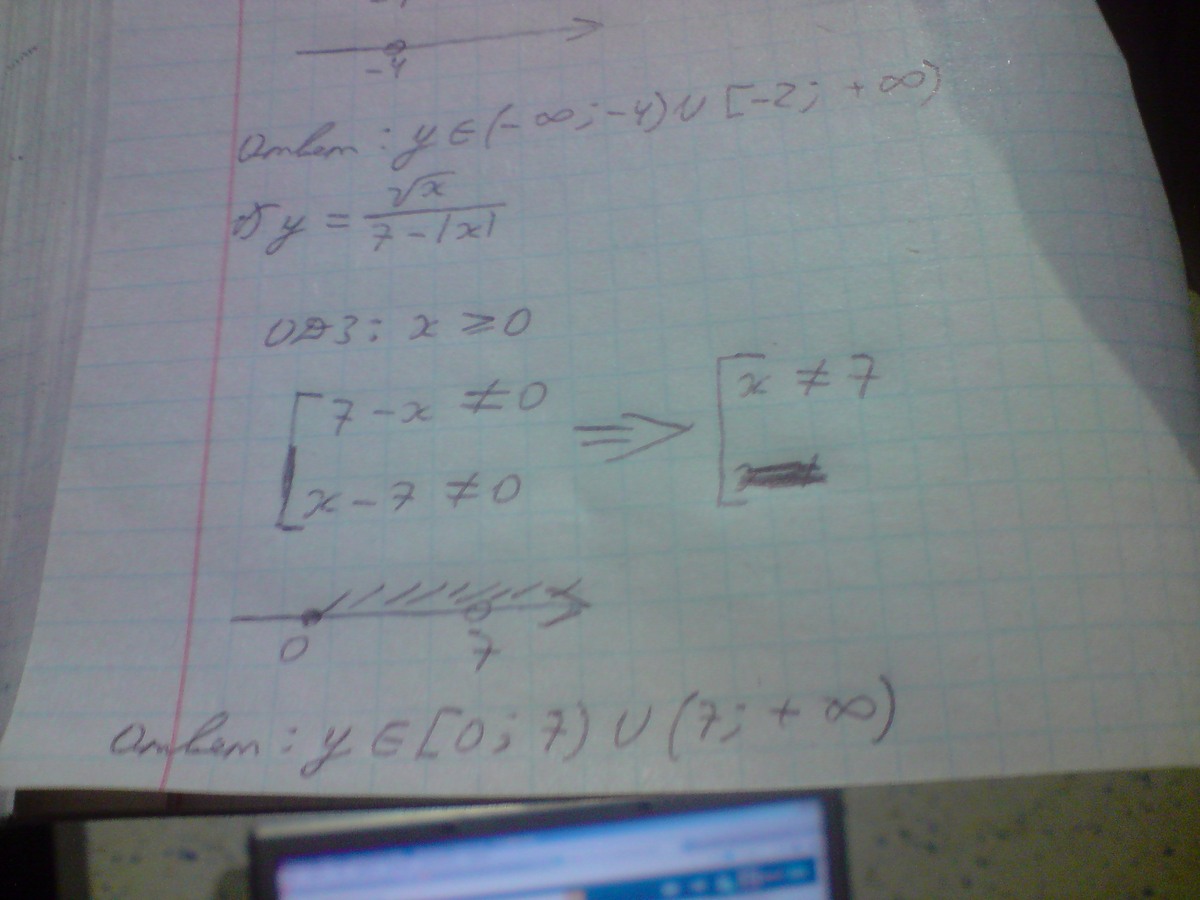 -4
Ответ: y ∈ (-∞; -4) ∪ [-2; +∞)
б) y = √x / (7 - |x|)
ОДЗ: x ≥ 0
[ 7 - x ≠ 0 ⇒ [ x ≠ 7
x - 7 ≠ 0
0 7
Ответ: y ∈ [0; 7) ∪ (7; +∞)